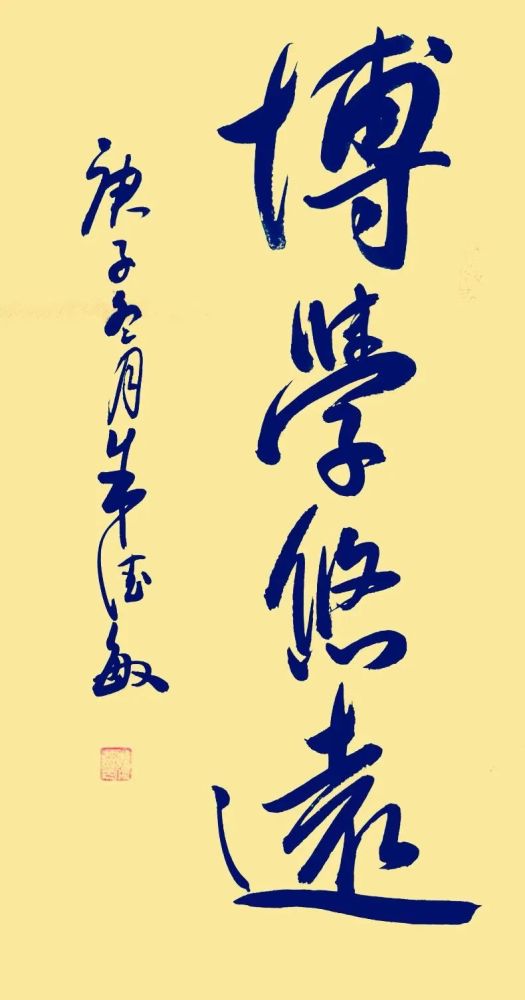 博學悠遠
庚子冬月朱德敏